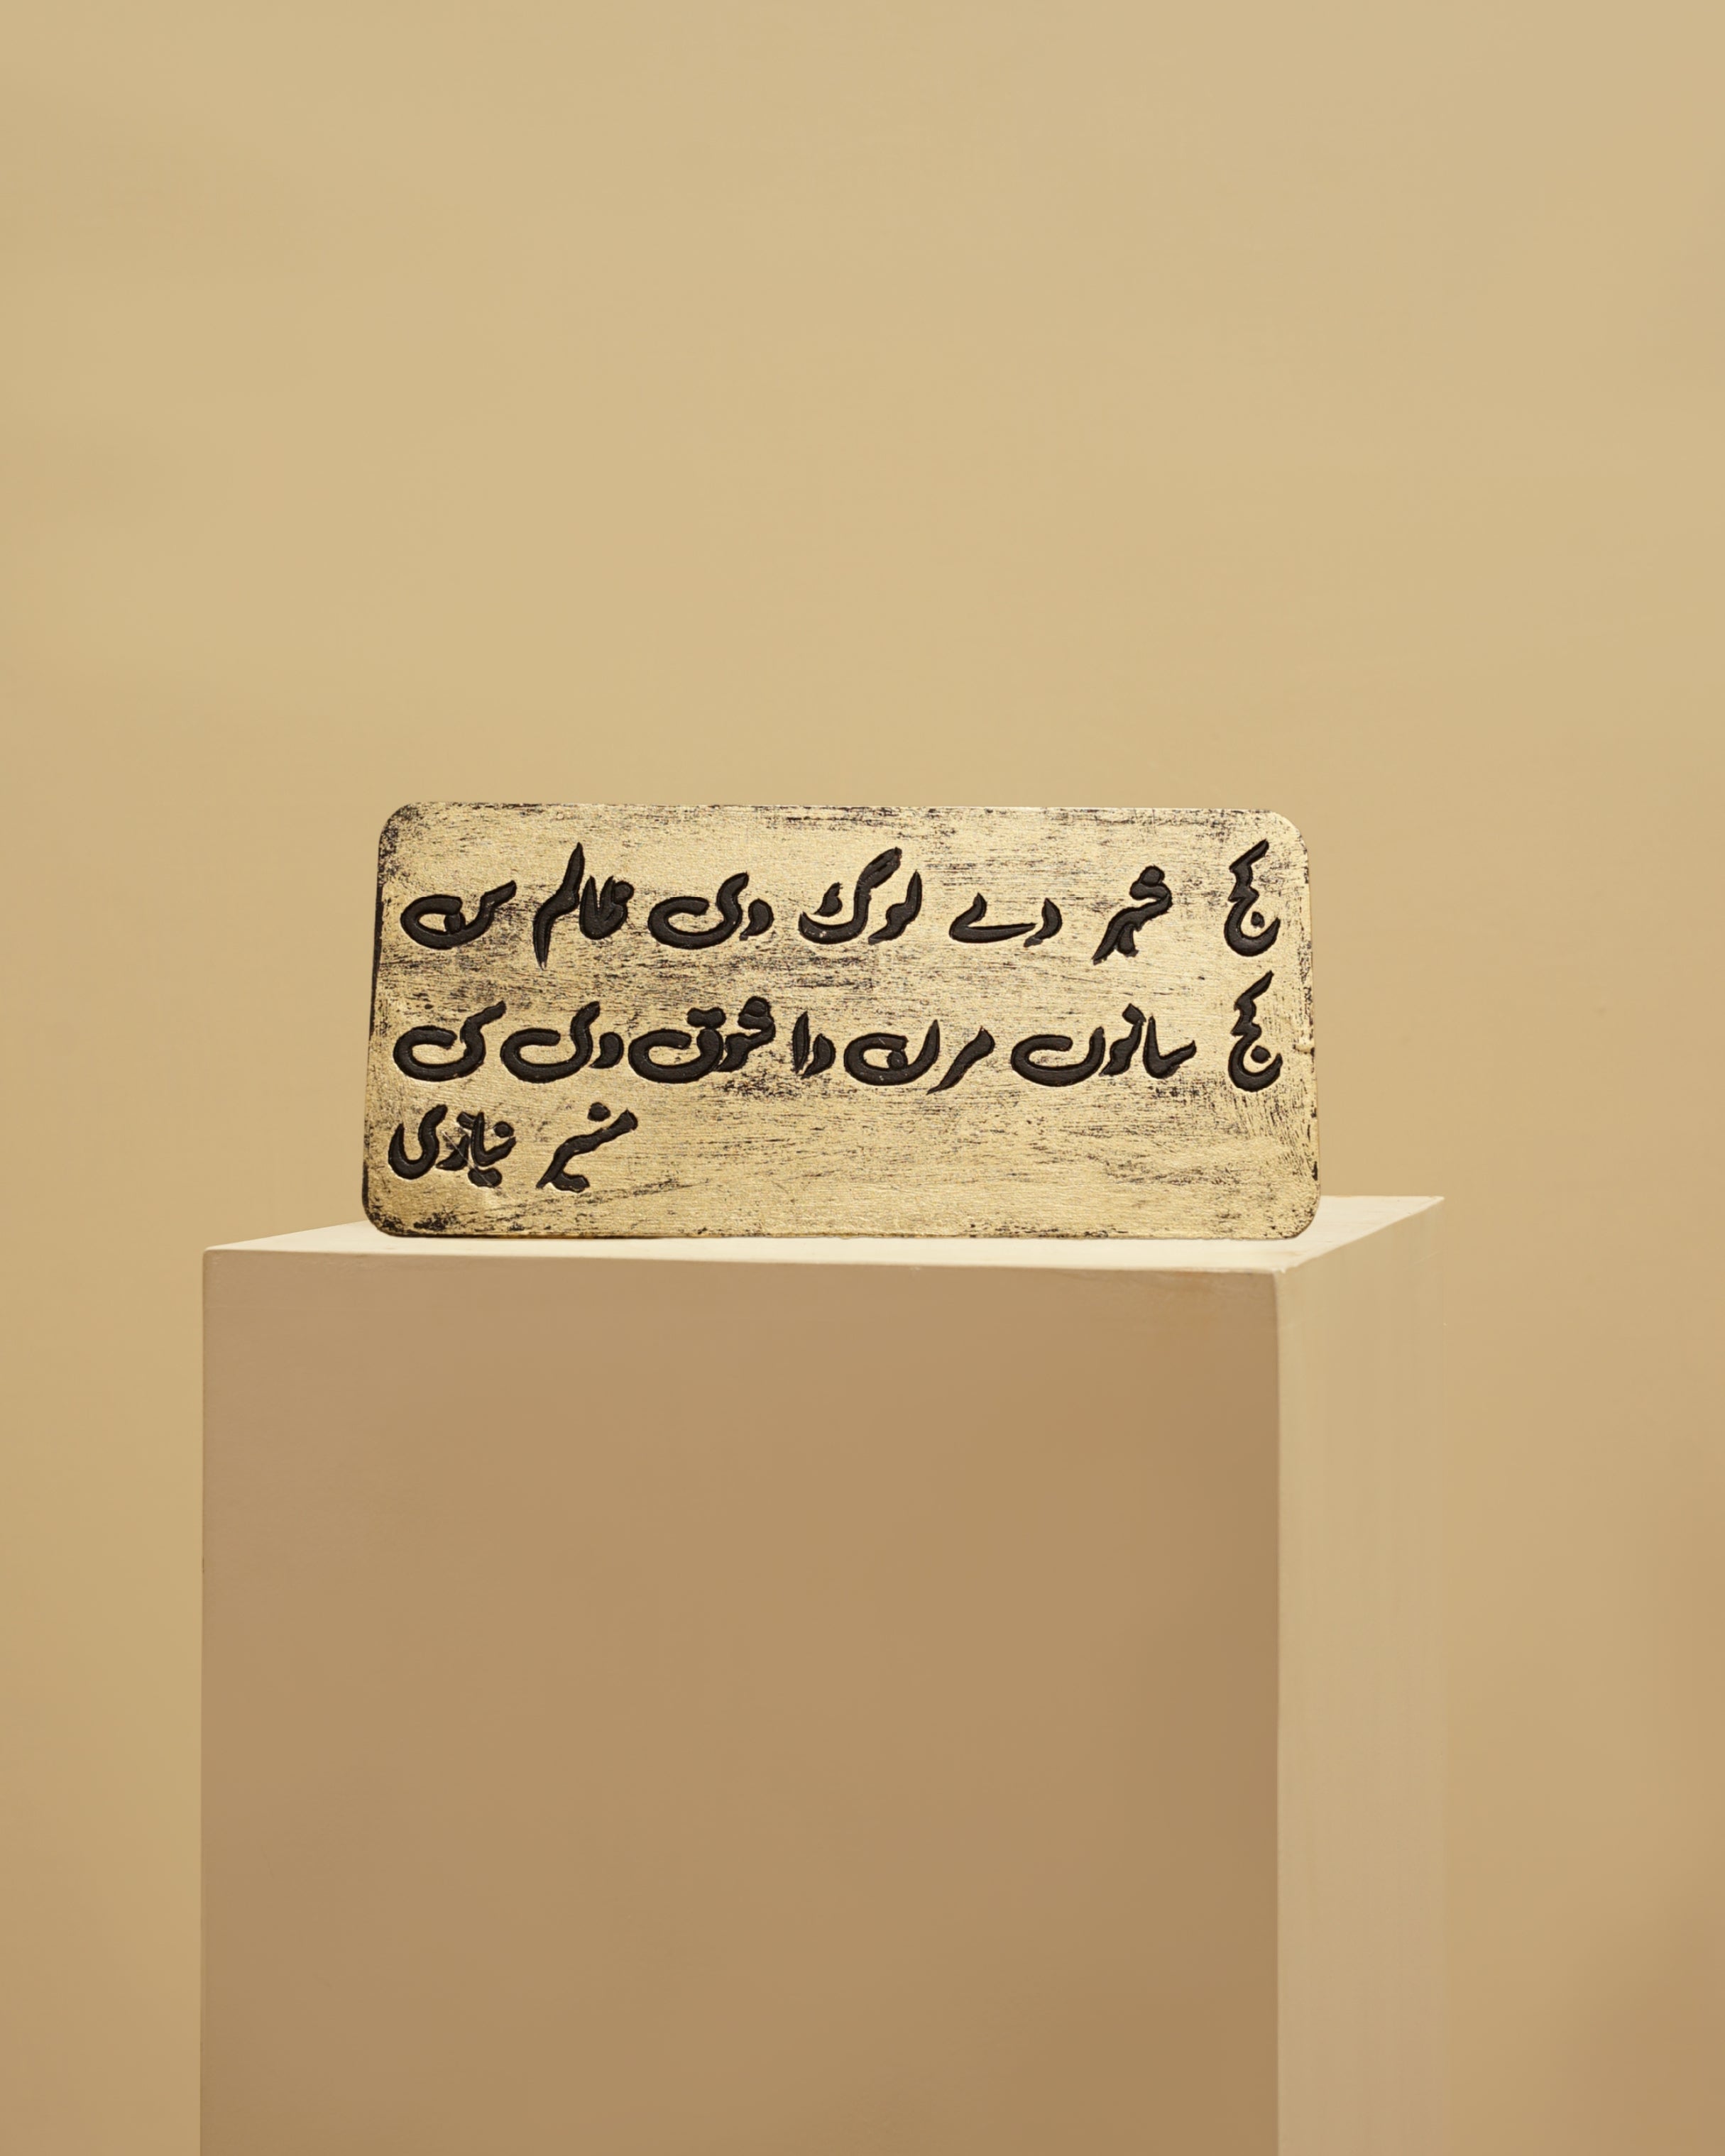 کج شہر دے لوک وی ظالم سن
کج سانوں مرن دا شوق وی سی
منیر نیازی